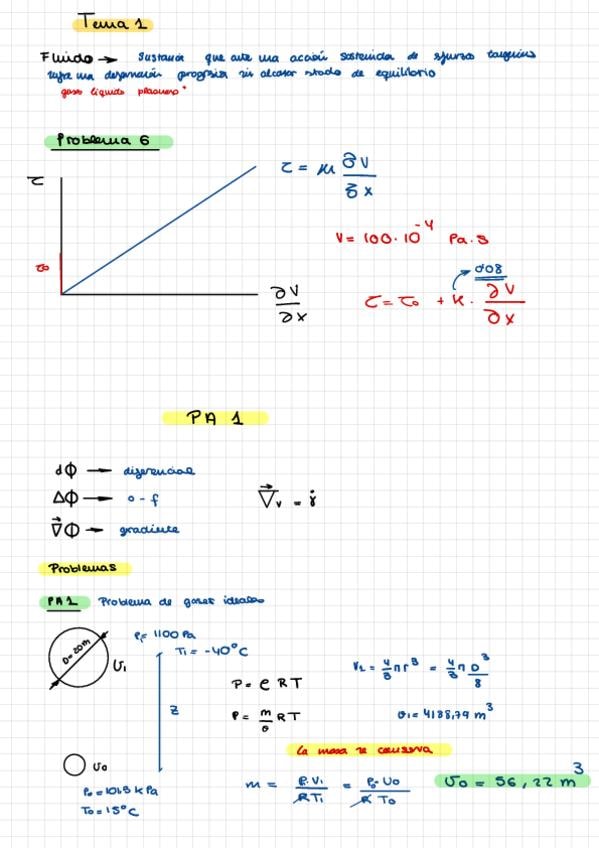 Tema 1
Fluido → Sustancia que ante una acción sostenida de esfuerzo tangencial
sufre una deformación progresiva sin alcanzar estado de equilibrio
gases líquido plasmas
Problema 6
τ
τ = μ ∂V/∂x
V = 100·10^-4 Pa·s
τ0
∂V/∂x
0'08
τ = τ0 + K · ∂V/∂x
PA 1
dΦ → diferencial
ΔΦ → o - f
∇Φ → gradiente
∇v = j
Problemas
PA1 Problema de gases ideales
D=20m
V1
P1= 1100 Pa
T1 = -40°C
Z
P = ρRT
P = m/v RT
V1 = 4/3 π r^3 = 4/3 π D^3/8
v1 = 4188,79 m^3
La masa se conserva
V0
P0 = 101,3 kPa
T0 = 15°C
m = P1 V1 / R T1 = P0 V0 / R T0
V0 = 56,22 m^3